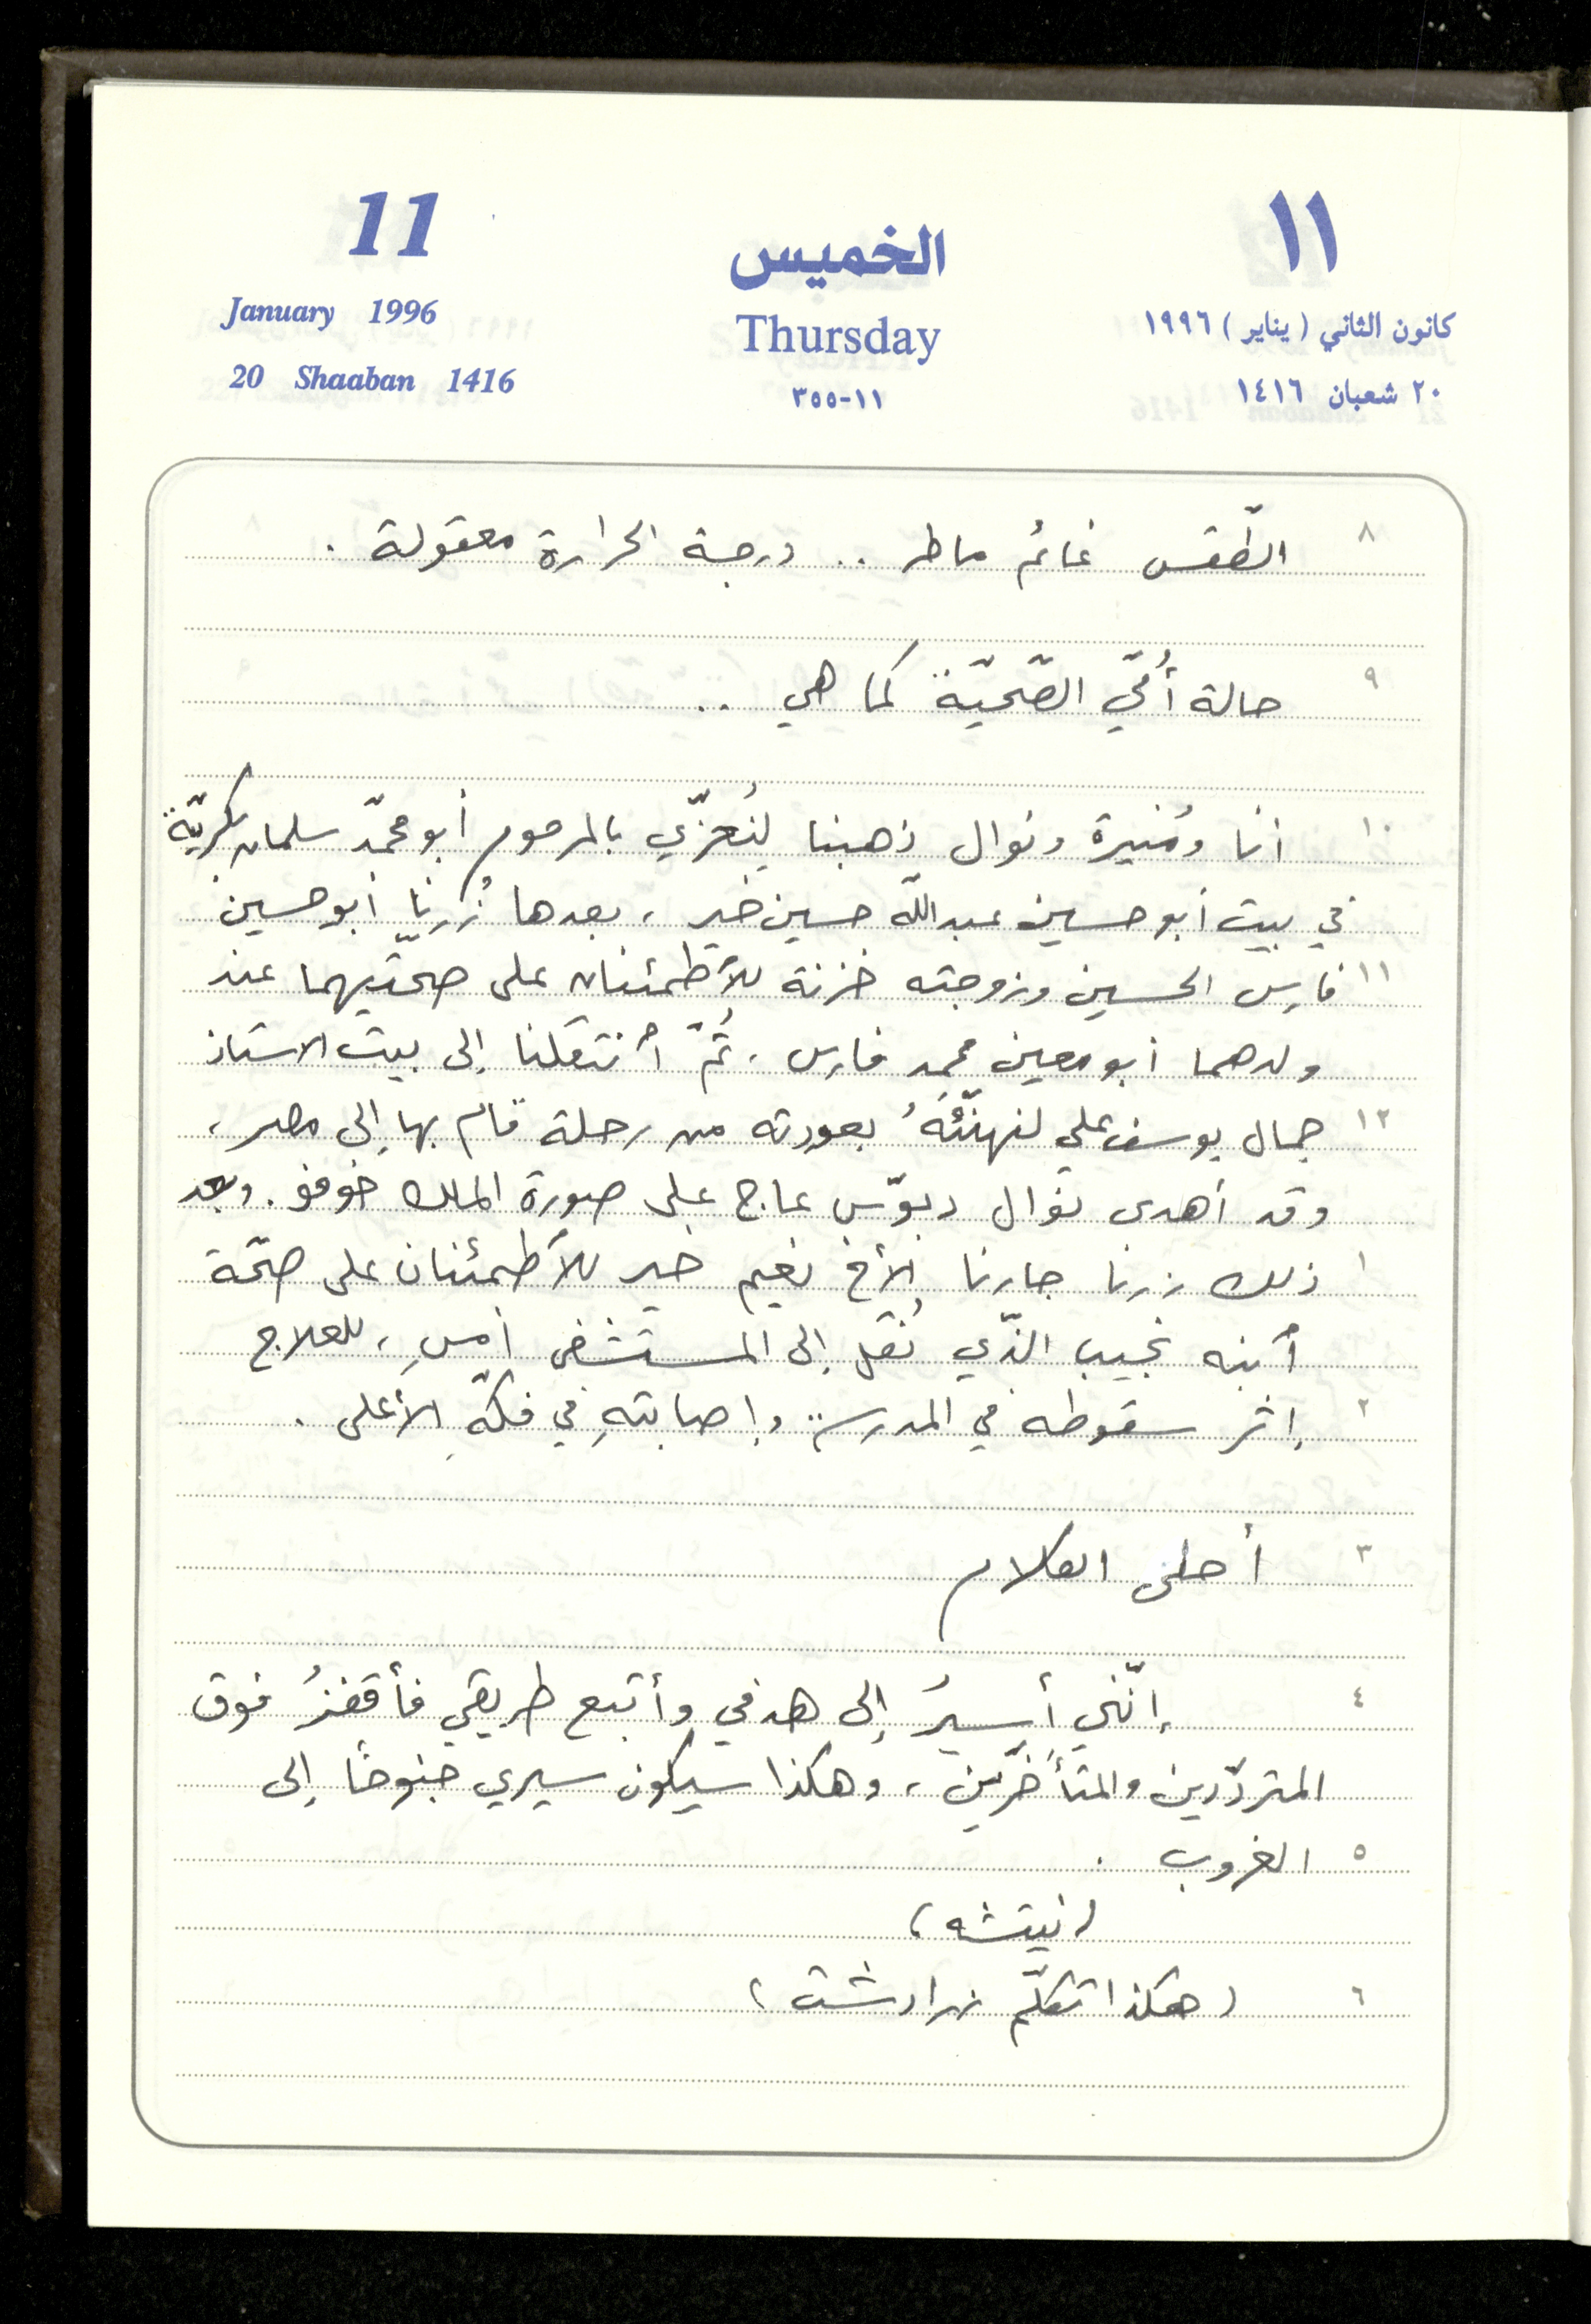 11
١١
الخميس
January 1996
Thursday
كانون الثاني (يناير) ١٩٩٦
20 Shaaban 1416
١١-٣٥٥
٢٠ شعبان ١٤١٦
٨ الطّقس غائم ماطر .. درجة الحرارة معقولة .
٩ حالة أُمّي الصّحيّة كما هي ..
١٠ أنا ومُنيرة ونوال ذهبنا لِنُعزّي بالمرحوم أبو محمّد سلمان بكريّة
في بيت أبو حسين عبدالله حسين خير ، بعدها زُرنا أبو حسين
١١ فارس الحسين وزوجته خزنة للأطمئنان على صحّتيهما عند
ولدهما أبو معين محمد فارس ، ثُمّ أنتقلنا إلى بيت الاستاذ
١٢ جمال يوسف علي لنهنّئَهُ بعودته من رحلة قام بها إلى مصر ،
وقد أهدى نوال دبوّس عاج على صورة الملك خوفو . وبعد
١ ذلك زرنا جارنا الأخ نعيم خير للأطمئنان على صحّة
أبنه نجيب الذّي نُقل إلى المستشفى أمسِ ، للعلاج
٢ إثر سقوطه في المدرسة وإصابتهِ في فكّهِ الأعلى .
٣ أحلى الكلام
٤ إنّني أسيرُ إلى هدفي وأتبع طريقي فأقفزُ فوق
المتردّدين والمتأخّرين ، وهكذا سيكون سيري جنوحًا إلى
٥ الغروب .
(نيتشه)
٦ (هكذا تكلّم زرادشت)